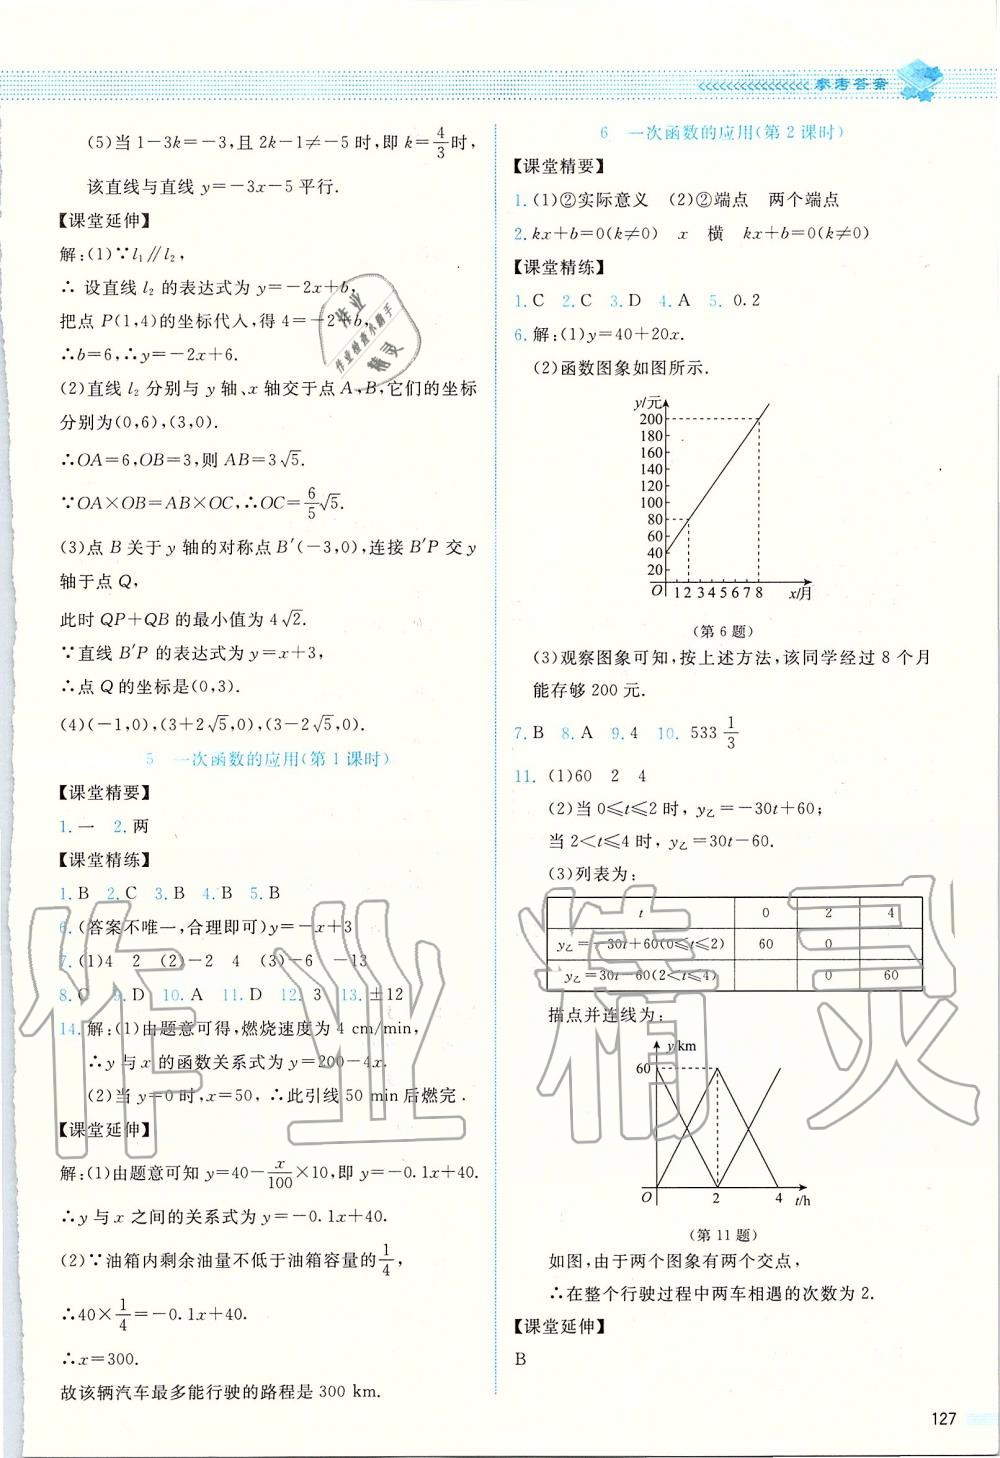 参考答案
(5)当 1-3k=-3,且 2k-1≠-5 时,即 k=4/3时,
该直线与直线 y=-3x-5 平行.
【课堂延伸】
解:(1)∵l₁∥l₂,
∴ 设直线 l₂ 的表达式为 y=-2x+b,
把点 P(1,4)的坐标代入,得 4=-2+b,
∴b=6,∴y=-2x+6.
(2)直线 l₂ 分别与 y 轴、x 轴交于点 A,B,它们的坐标
分别为(0,6),(3,0).
∴OA=6,OB=3,则 AB=3√5.
∵OA×OB=AB×OC,∴OC=6/5√5.
(3)点 B 关于 y 轴的对称点 B′(-3,0),连接 B′P 交 y
轴于点 Q,
此时 QP+QB 的最小值为 4√2.
∵直线 B′P 的表达式为 y=x+3,
∴点 Q 的坐标是(0,3).
(4)(-1,0),(3+2√5,0),(3-2√5,0).
5 一次函数的应用(第 1 课时)
【课堂精要】
1. 一 2. 两
【课堂精练】
1. B 2. C 3. B 4. B 5. B
6. (答案不唯一,合理即可)y=-x+3
7. (1)4 2 (2)-2 4 (3)-6 -13
8. C 9. D 10. A 11. D 12. 3 13. ±12
14. 解:(1)由题意可得,燃烧速度为 4 cm/min,
∴y 与 x 的函数关系式为 y=200-4x.
(2)当 y=0 时,x=50, ∴此引线 50 min 后燃完.
【课堂延伸】
解:(1)由题意可知 y=40-x/100×10,即 y=-0.1x+40.
∴y 与 x 之间的关系式为 y=-0.1x+40.
(2)∵油箱内剩余油量不低于油箱容量的1/4,
∴40×1/4=-0.1x+40.
∴x=300.
故该辆汽车最多能行驶的路程是 300 km.
6 一次函数的应用(第 2 课时)
【课堂精要】
1. (1)②实际意义 (2)②端点 两个端点
2. kx+b=0(k≠0) x 横 kx+b=0(k≠0)
【课堂精练】
1. C 2. C 3. D 4. A 5. 0.2
6. 解:(1)y=40+20x.
(2)函数图象如图所示.
y/元
200
180
160
140
120
100
80
60
40
20
O 1 2 3 4 5 6 7 8 x/月
(第 6 题)
(3)观察图象可知,按上述方法,该同学经过 8 个月
能存够 200 元.
7. B 8. A 9. 4 10. 533 1/3
11. (1)60 2 4
(2)当 0≤t≤2 时,y乙=-30t+60;
当 2<t≤4 时,y乙=30t-60.
(3)列表为:
t 0 2 4
y乙=-30t+60(0≤t≤2) 60 0
y乙=30t-60(2<t≤4) 0 60
描点并连线为:
y/km
60
O 2 4 t/h
(第 11 题)
如图,由于两个图象有两个交点,
∴在整个行驶过程中两车相遇的次数为 2.
【课堂延伸】
B
127
作业
作业检查小助手
精灵
作业精灵